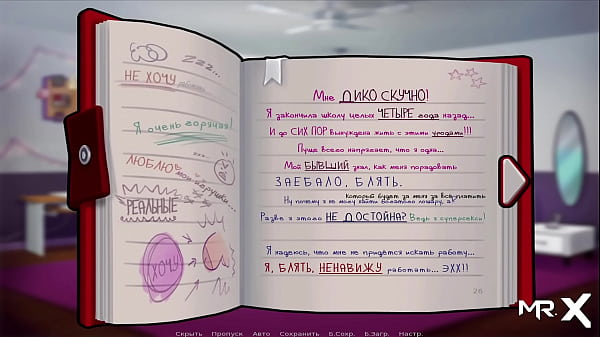 Zzz...
НЕ ХОЧУ работать...
Я очень горячая!
ЛЮБЛЮ мои игрушки...
РЕАЛЬНЫЕ
ХОЧУ
Мне ДИКО СКУЧНО!
Я закончила школу целых ЧЕТЫРЕ года назад...
И до СИХ ПОР вынуждена жить с этими уродами!!!
Пуще всего напрягает, что я одна...
Мой БЫВШИЙ знал, как меня порадовать
ЗАЕБАЛО, БЛЯТЬ.
который будет за меня всё платить
Ну почему я не могу найти богатого лошару, а?
Разве я этого НЕ ДОСТОЙНА? Ведь я суперсекси!
Я надеюсь, что мне не придётся искать работу...
Я, БЛЯТЬ, НЕНАВИЖУ работать... ЭХХ!!
26
MR. X
Скрыть Пропуск Авто Сохранить Б.Сохр. Б.Загр. Настр.